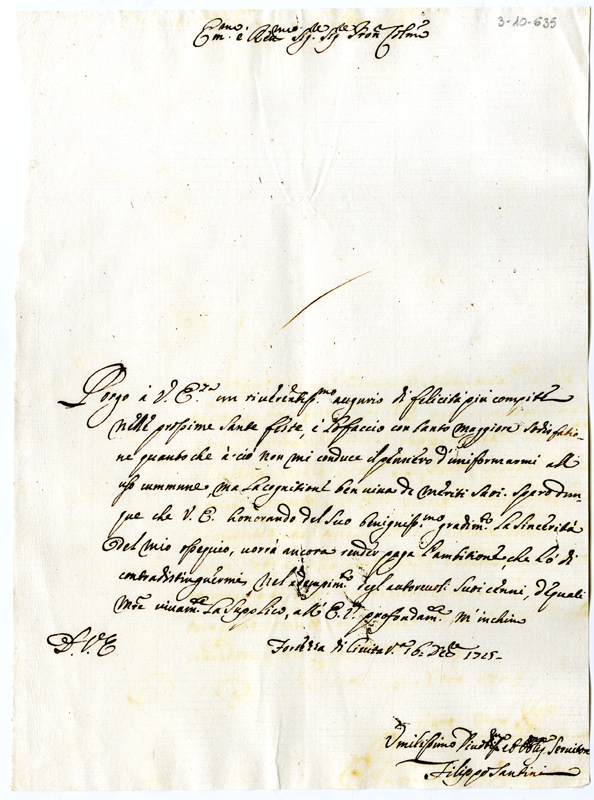 3-10-635
Em.mo e Rev.mo Sig.r Sig.r Pron Colmo
Porgo à V. E.za un riverentiss.mo augurio di felicità più compite
nelle prossime Sante feste, e lo faccio con tanto maggiore sodisfatio-
ne quanto che à ciò non mi conduce il pensiero d'uniformarmi all'
uso commune, ma la cognitione ben viva de meriti Suoi. Spero dun-
que che V. E. honorando del Suo benigniss.mo gradim.to la sincerità
del mio ossequio, vorrà ancora render paga l'ambitione, che hò di
contradistinguermi nel adempim.to degl'autorevoli Suoi cenni, de quali
vivam.te La Supplico, all' E. V. profondam.te m'inchino
D. V. E
Fortezza di Civita V.a 16 Dec.e 1715-
Umilissimo Divotis.mo et Obblig.mo Servitore
Filippo Santini